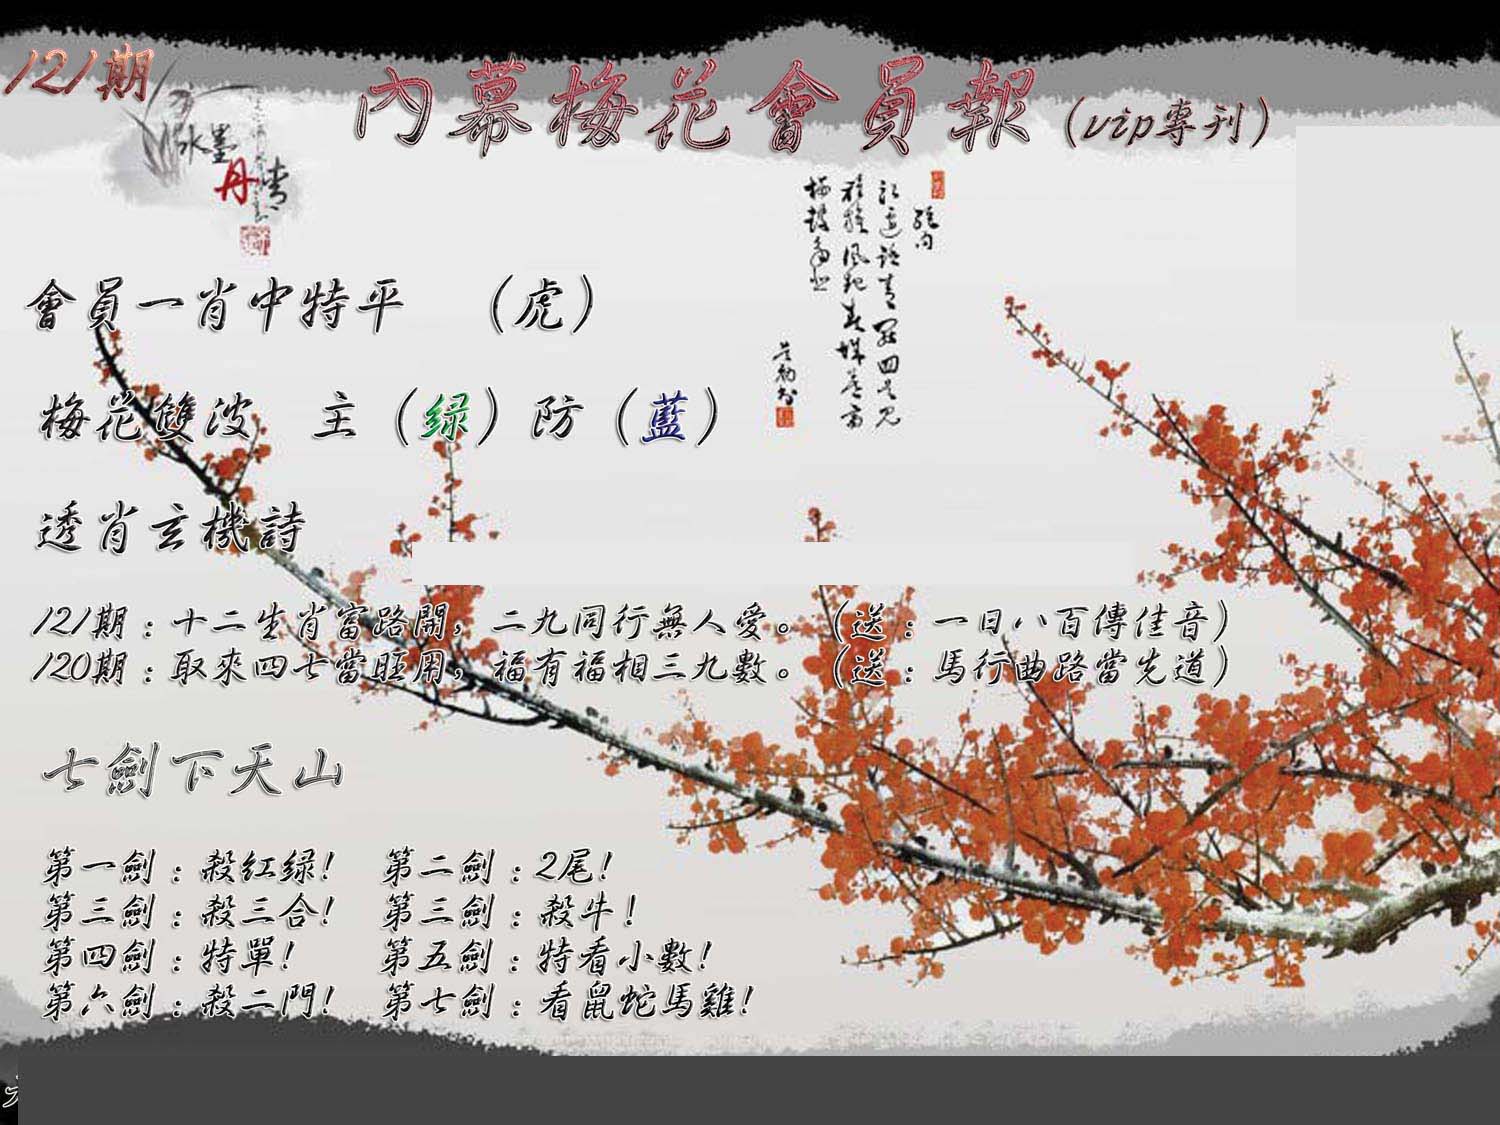 121期
內幕梅花會員報（vip專刊）
水墨
丹青
會員一肖中特平 （虎）
梅花雙波 主（绿）防（藍）
透肖玄機詩
121期：十二生肖富路開，二九同行無人愛。（送：一日八百傳佳音）
120期：取來四七當旺用，福有福相三九數。（送：馬行曲路當先道）
七劍下天山
第一劍：殺红绿! 第二劍：2尾!
第三劍：殺三合! 第三劍：殺牛!
第四劍：特單! 第五劍：特看小數!
第六劍：殺二門! 第七劍：看鼠蛇馬雞!